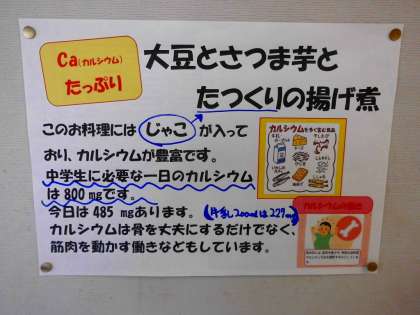 Ca(カルシウム)
たっぷり
大豆とさつま芋と
たつくりの揚げ煮
このお料理には じゃこ が入って
おり、カルシウムが豊富です。
中学生に必要な一日のカルシウム
は800mgです。
今日は485 mgあります。(牛乳200mlは227mg)
カルシウムは骨を丈夫にするだけでなく、
筋肉を動かす働きなどもしています。
カルシウムを多く含む食品
カルシウムの働き